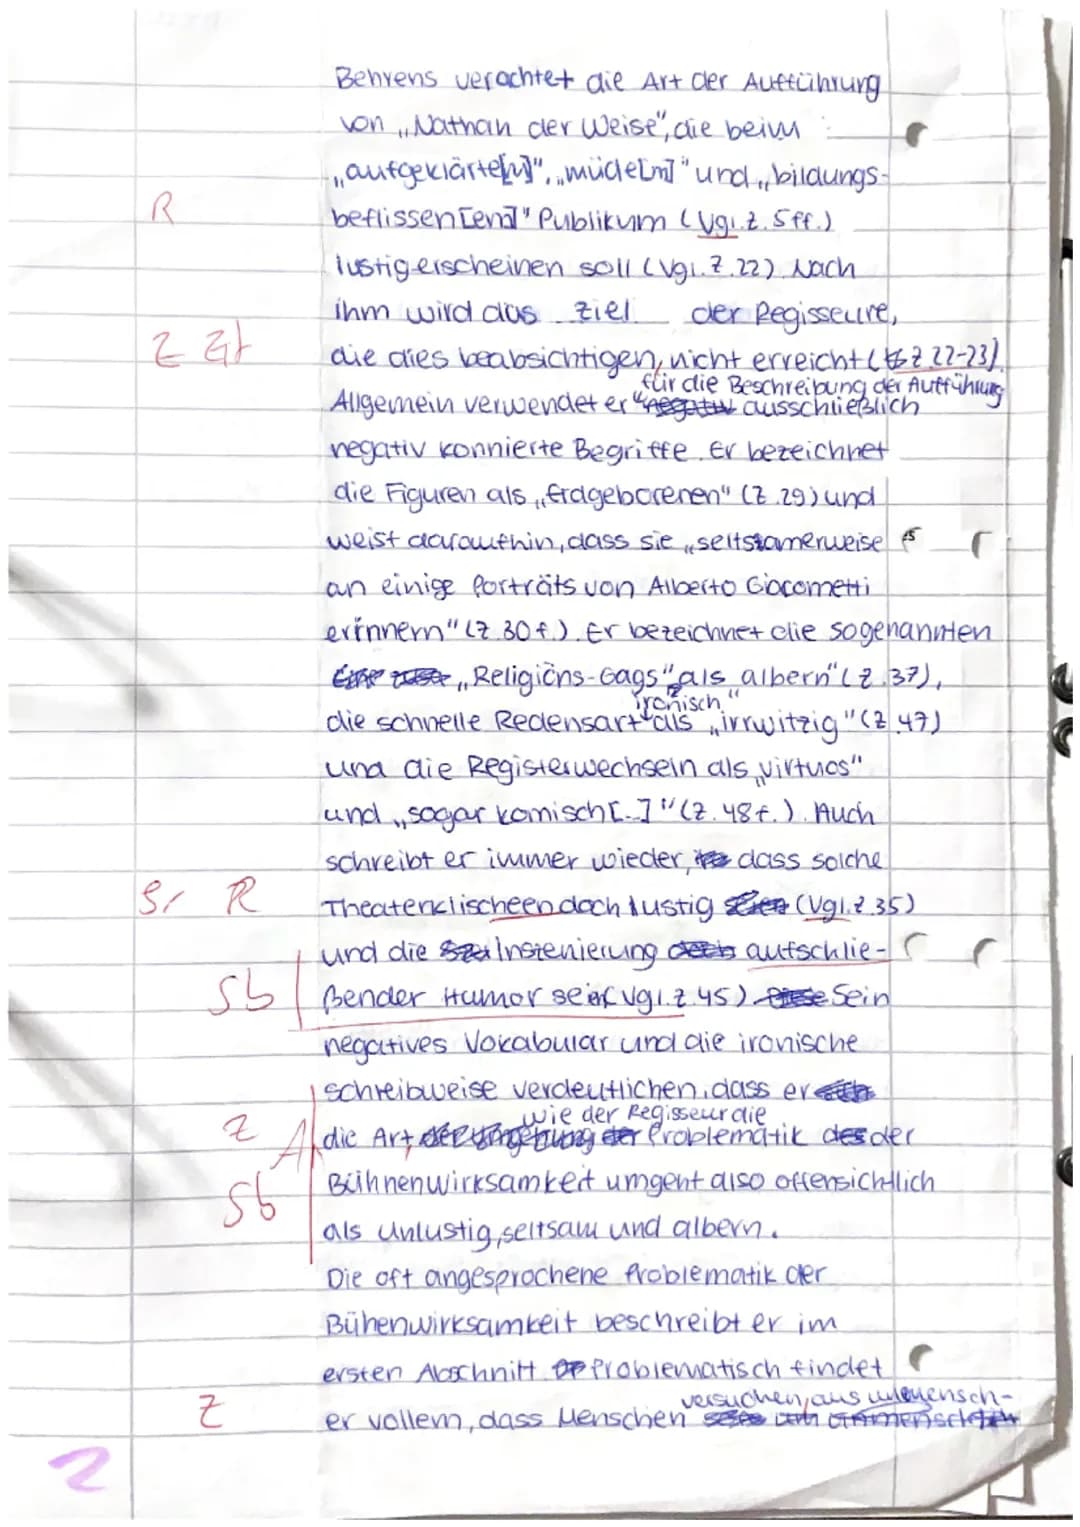 Behrens verachtet die Art der Aufführung
von „Nathan der Weise", die beim
„aufgeklärte[n]", „müde[m]" und „bildungs-
R beflissen[en]" Publikum (Vgl. Z. 5ff.)
lustig erscheinen soll (Vgl. Z. 22). Nach
ihm wird das Ziel der Regisseure,
Z die dies beabsichtigen, nicht erreicht (Z. 22-23)
für die Beschreibung der Aufführung
Allgemein verwendet er ausschließlich
negativ konnierte Begriffe. Er bezeichnet
die Figuren als „Erdgeborenen" (Z. 29) und
weist daraufhin, dass sie „seltsamerweise
an einige Porträts von Alberto Giacometti
erinnern" (Z. 30f.). Er bezeichnet die sogenannten
„Religions-Gags" als „albern" (Z. 37),
ironisch
die schnelle Redensart als „irrwitzig" (Z. 47)
und die Registerwechseln als „virtuos"
und „sogar komisch[...]" (Z. 48f.). Auch
schreibt er immer wieder, dass solche
R Theaterklischeen doch lustig (Vgl. Z. 35)
und die Inszenierung aufschlie-
Sb ßender Humor sei (Vgl. Z. 45). Sein
negatives Vokabular und die ironische
Schreibweise verdeutlichen, dass er
wie der Regisseur die
Z A die Art, Problematik der
Sb Bühnenwirksamkeit umgeht also offensichtlich
als unlustig, seltsam und albern.
Die oft angesprochene Problematik der
Bühenwirksamkeit beschreibt er im
ersten Abschnitt. Problematisch findet
versuchen, aus
Z er vollem, dass Menschen
2